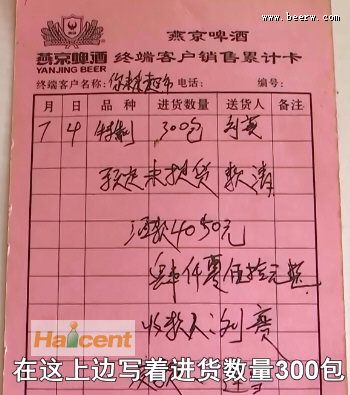 www.beerw.com
燕京啤酒
燕京啤酒 终端客户销售累计卡
YANJING BEER
终端客户名称: 你来我超市 电话: 编号:
月 日 品种 进货数量 送货人 备注
7 4 特制 300包 刘赛
未提货 款清
酒款4050元
肆仟零伍拾元整
收款人:刘赛
Haicent
在这上边写着进货数量300包